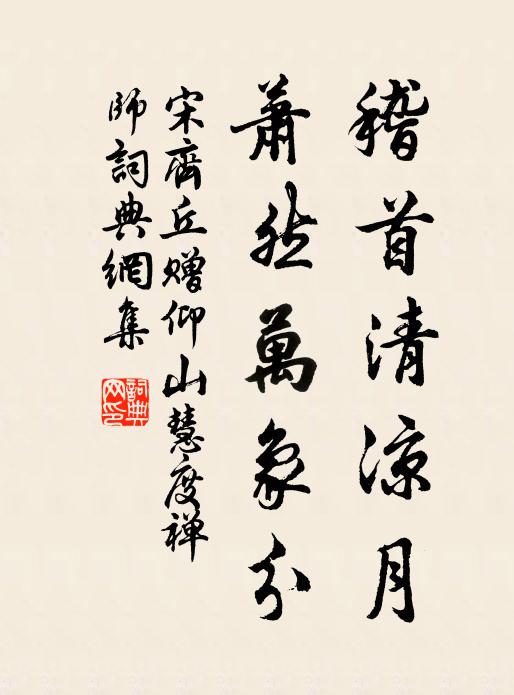 稽首清涼月
蕭然萬象分
宋齊丘贈仰山慧度禪
師詞典網集
詞典
网印